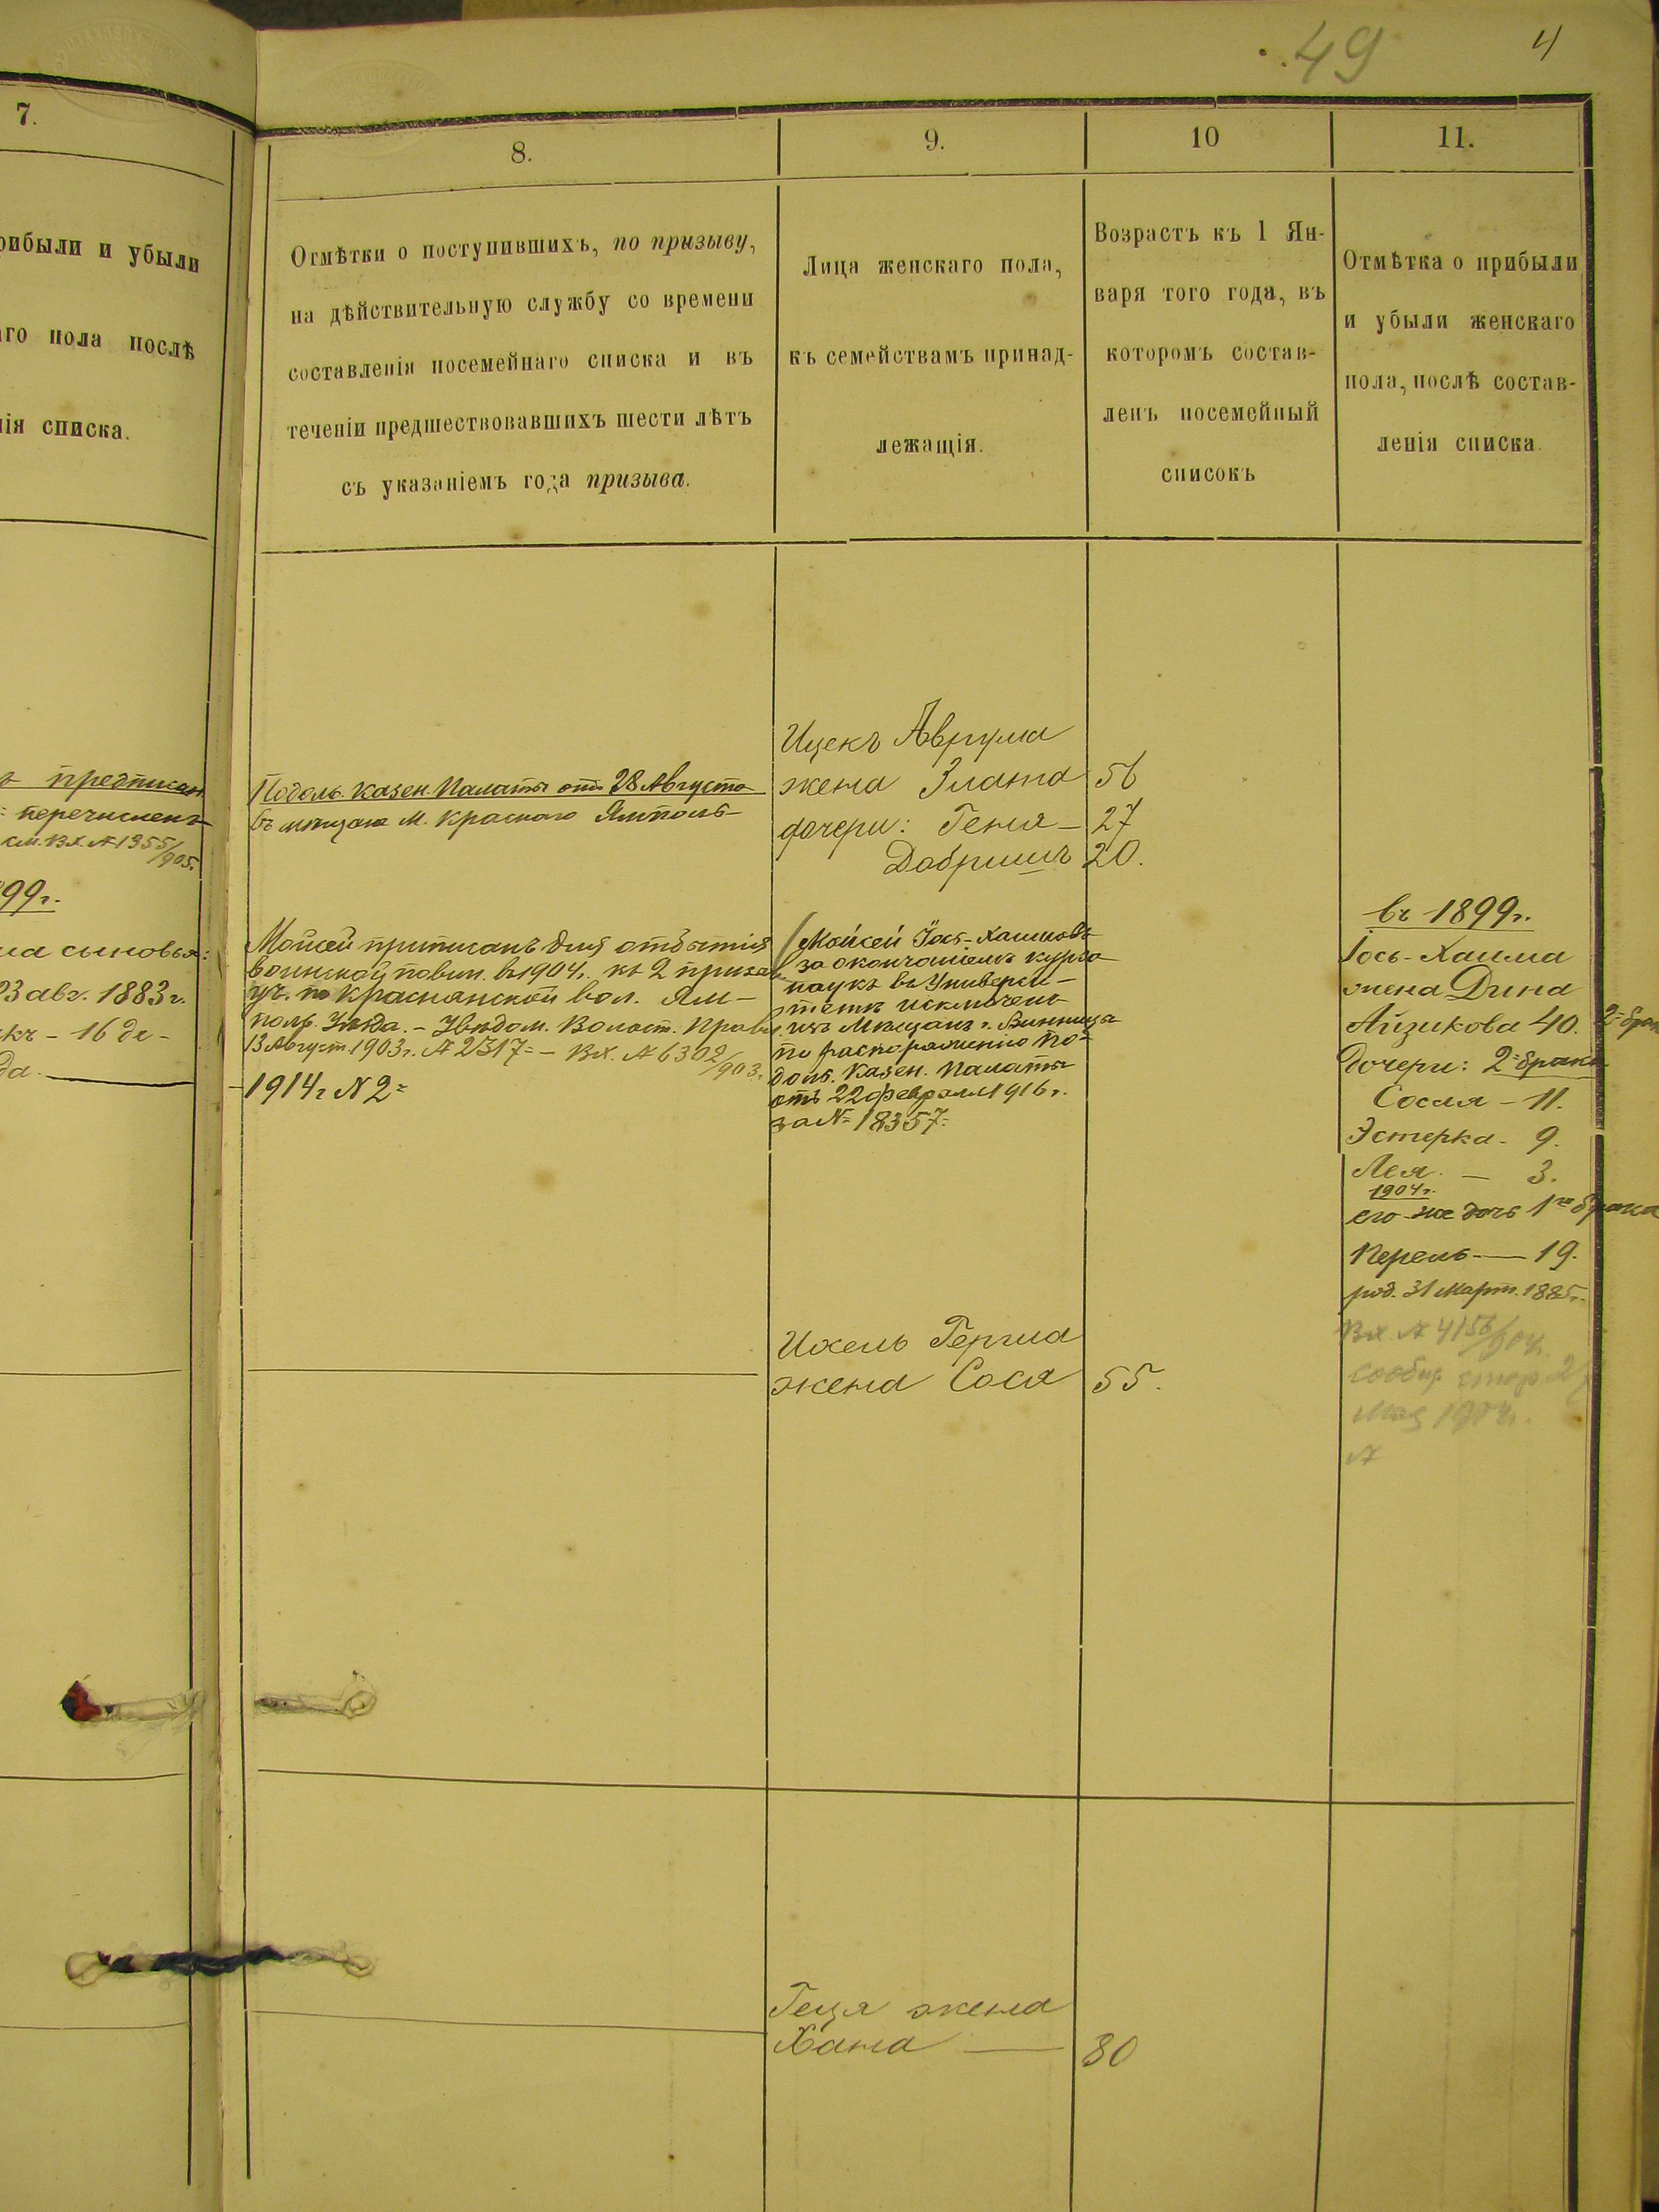 49
4
7.
8.
9.
10
11.
рибыли и убыли
аго пола послѣ
нія списка.
Отмѣтки о поступившихъ, по призыву,
на дѣйствительную службу со времени
составленія посемейнаго списка и въ
теченіи предшествовавшихъ шести лѣтъ
съ указаніемъ года призыва.
Лица женскаго пола,
къ семействамъ принад-
лежащія.
Возрастъ къ 1 Ян-
варя того года, въ
которомъ состав-
ленъ посемейный
списокъ
Отмѣтка о прибыли
и убыли женскаго
пола, послѣ состав-
ленія списка.
предписан
перечисленъ
см. Вх. № 1355/905.
99 г.
ма сыновья:
23 авг. 1883 г.
къ - 16 де-
да.
Подоль. Казен. Палаты отъ 28 Августа
въ мѣщане м. Красного Ямполь-
Мойсей приписанъ для отбытія
воинской повин. въ 1904 г. къ 2 призыв
уч. по Краснянской вол. Ям-
поль. Уѣзда. - Увѣдом. Волост. Прав
13 Август. 1903 г. № 2317 = - Вх. № 6302/903.
1914 г № 2 =
Ицекъ Аврума
жена Злата 56
дочери: Геня - 27
Добришъ 20.
(Мойсей Іось-Хаимовъ
за окончаніемъ курса
наукъ въ Универси-
тетѣ исключенъ
изъ Мѣщанъ г. Винницы
по распоряженію По-
дол. Казен. Палаты
отъ 22 февраля 1916 г.
за № 18357 =
Ихель Герша
жена Сося 55.
Геця жена
Хана — 30
въ 1899 г.
Іось-Хаима
жена Дина
Айзикова 40. 2 = брак
Дочери: 2 = брака
Сося - 11.
Эстерка - 9.
Лея - 3.
1904 г.
его же дочь 1го брака
Перель — 19.
род. 31 Март. 1885 г.
Вх № 4156/904
сообщ 2
Мая 1904 г.
№